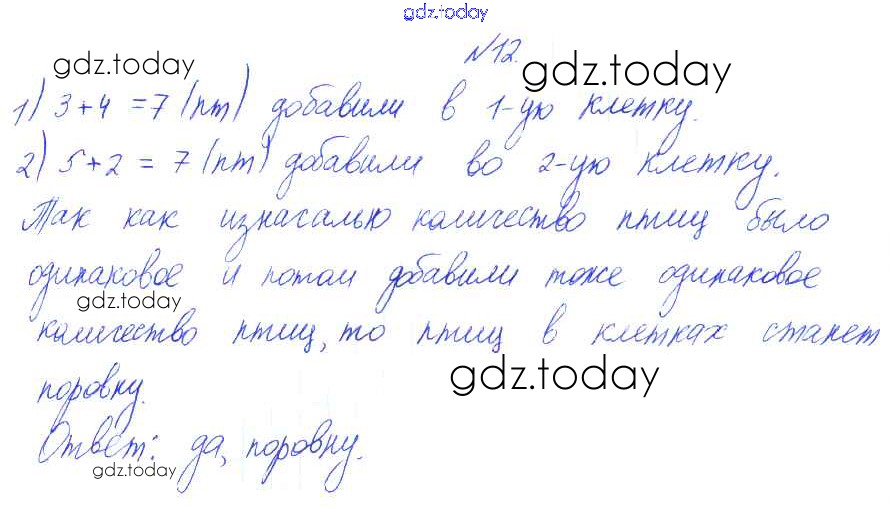 gdz.today
gdz.today
№12.
gdz.today
1) 3+4 =7 (пт) добавили в 1-ую клетку.
2) 5+2 = 7 (пт) добавили во 2-ую клетку.
Так как изначально количество птиц было
одинаковое и потом добавили тоже одинаковое
gdz.today
количество птиц, то птиц в клетках станет
gdz.today
поровну.
Ответ: да, поровну.
gdz.today